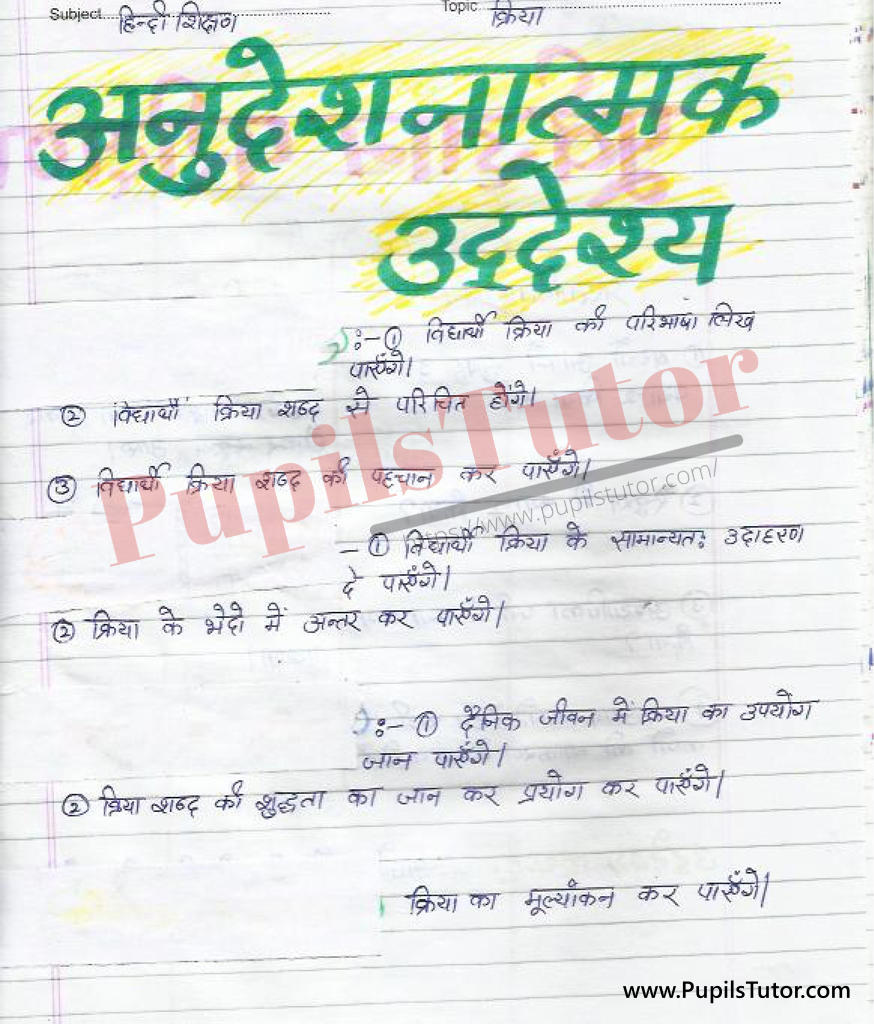 Subject हिन्दी शिक्षण Topic क्रिया
अनुदेशनात्मक
उद्देश्य
:- ① विद्यार्थी क्रिया की परिभाषा लिख
पाएँगे।
② विद्यार्थी क्रिया शब्द से परिचित होंगे।
③ विद्यार्थी क्रिया शब्द की पहचान कर पाएँगे।
- ① विद्यार्थी क्रिया के सामान्यतः उदाहरण
दे पाएँगे।
② क्रिया के भेदो में अन्तर कर पाएँगे।
:- ① दैनिक जीवन में क्रिया का उपयोग
जान पाएँगे।
② क्रिया शब्द की शुद्धता का जान कर प्रयोग कर पाएँगे।
क्रिया का मूल्यांकन कर पाएँगे।
PupilsTutor
https://www.pupilstutor.com/
www.PupilsTutor.com